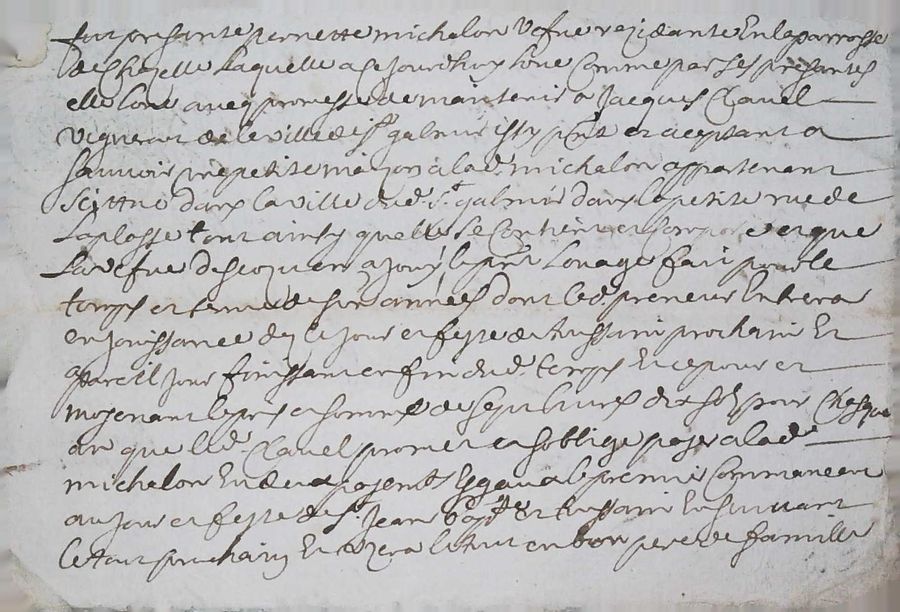 fut presante pernette michalon vefve rezidante En la parroisse
de Chazelle Laquelle a ce jourdhuy loué Comme par ses presantes
elle loue aveq promesse de maintenir a Jacques Clavel
vigneron de la ville de st galmier issy pnt et aceptant a
sauvoir une petite maizon a lad. michalon appartenant
scittué dans la ville dud. st galmié dans la petite rue de
la plasse tout ainsy quelle se Contient et Comporte et que
la vefve descoquer a jouy le pnt Louage fait pour le
temps et terme de six années dont led. preneur Entrera
en jouissance dez le jour et feste de tussain prochain Et
a pareil jour finissant en fin dud. temps Et ce pour et
moyenant le pris et somme de sept livres dix sols pour Chasque
an que led. Clavel promet et soblige payer a lad.
michalon En deux payemts Esgaux le premier Commancant
au jour et feste de st Jean bapte Et tussain En suivant
le tout prochain Et uzera le tout en bon pere de famille